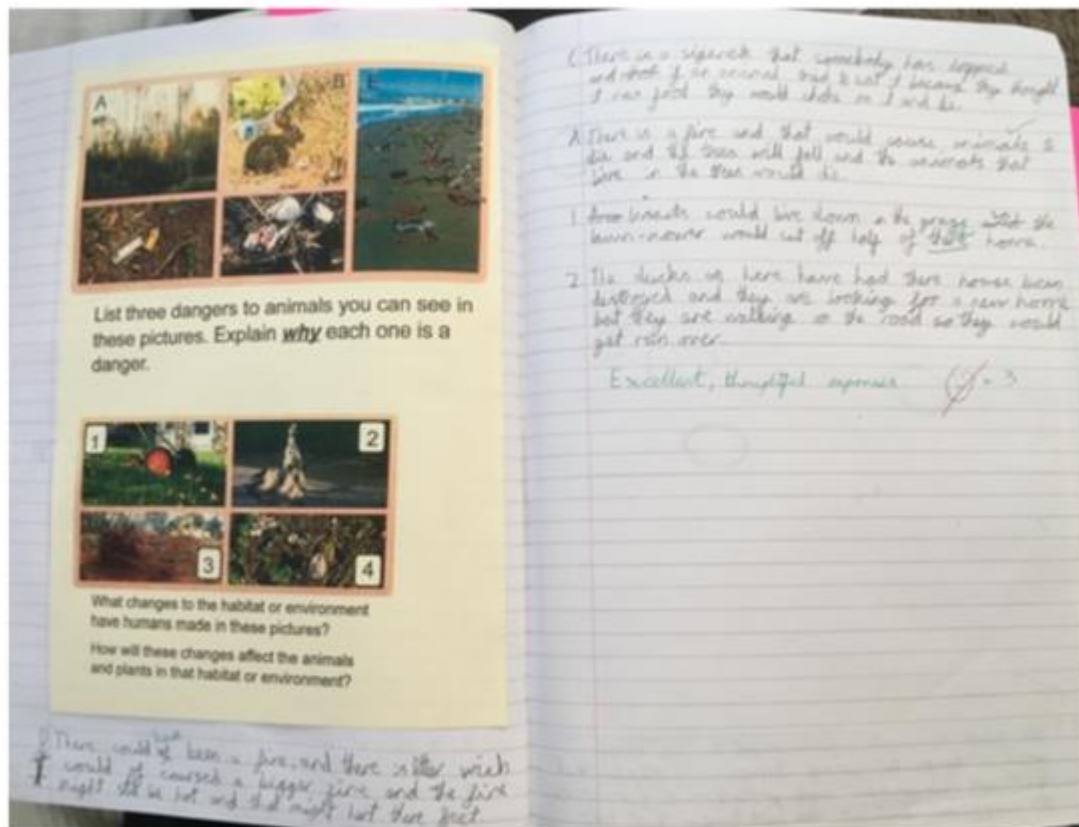 A
B
E
List three dangers to animals you can see in
these pictures. Explain why each one is a
danger.
1
2
3
4
What changes to the habitat or environment
have humans made in these pictures?
How will these changes affect the animals
and plants in that habitat or environment?
There could have been a fire, and there is litter wich
would of caursed a bigger fire and the fire
might still be hot and that might hurt there feet
There is a sigarett that somebody has dropped
and if an animal tried to eat it because they thought
it was food they would choke on it and die.
A There is a fire and that would cause animals to
die and the trees will fall and the animals that
live in the trees would die.
1. insects would live down in the the
lawn-mower would cut off half of their home.
2 The ducks in here have had there homes been
destroyed and they are looking for a new home
but they are walking on the road so they would
get run over.
Excellent, thoughtful responses